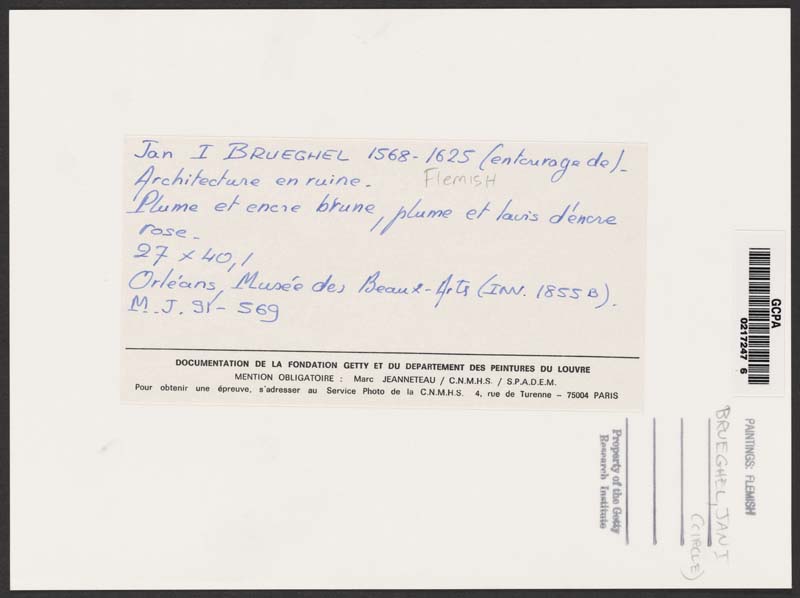 Jan I BRUEGHEL 1568-1625 (entourage de)-
Architecture en ruine-
Flemish
Plume et encre brune, plume et lavis d'encre
rose-
27 x 40,1
Orléans, Musée des Beaux-Arts (INV. 1855 B).
M.J. 91-569
DOCUMENTATION DE LA FONDATION GETTY ET DU DEPARTEMENT DES PEINTURES DU LOUVRE
MENTION OBLIGATOIRE : Marc JEANNETEAU / C.N.M.H.S. / S.P.A.D.E.M.
Pour obtenir une épreuve, s'adresser au Service Photo de la C.N.M.H.S. 4, rue de Turenne – 75004 PARIS
GCPA
0217247 6
PAINTINGS: FLEMISH
BRUEGHEL, JAN I
(CIRCLE)
Property of the Getty
Research Institute